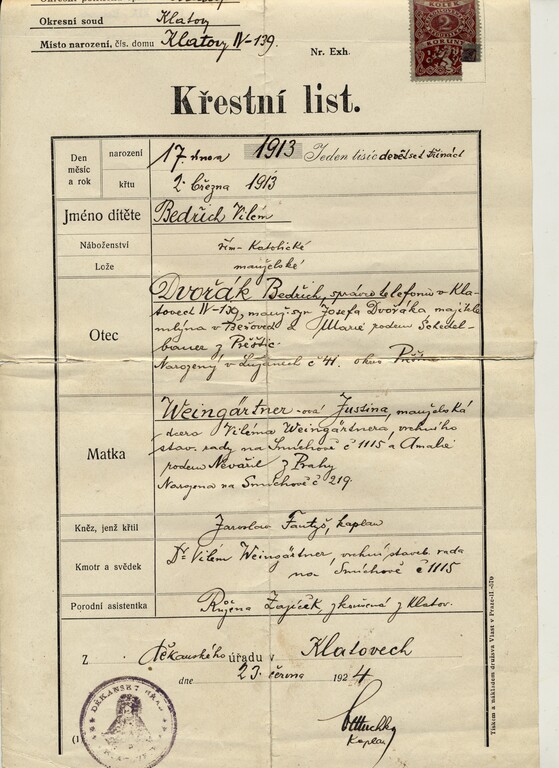 Okresní soud Klatovy
Místo narození, čís. domu Klatovy IV-139.
Nr. Exh.
KOLEK
2
KORUNY
Křestní list.
Den měsíc a rok
narození 17. února 1913 Jeden tisíc devětset třináct
křtu 2. března 1913
Jméno dítěte Bedřich Vilém
Náboženství řím-Katolické
Lože manželské
Otec
Dvořák Bedřich, správce telefonů v Kla-
tovech IV-139, manž. syn Josefa Dvořáka, majitele
mlýna v a Marie rodem Schedel-
bauer z Přeštic.
Narozený v Lužanech č 41. okres
Matka
Weingärtner-ová Justina, manželská
dcera Viléma Weingärtnera, vrchního
stav. rady na Smíchově č 1115 a Amalie
rodem Nevářil z Prahy
Narozena na Smíchově č 219.
Kněz, jenž křtil Jaroslav kaplan
Kmotr a svědek Dr Vilém Weingärtner, vrchní staveb. rada
na Smíchově č 1115
Porodní asistentka Růžena Zajíček, zkoušená z Klatov.
Z děkanského úřadu v Klatovech
dne 23. června 1924
Kaplan
DĚKANSKÝ ÚŘAD
(1
Tiskem a nákladem družstva Vlast v Praze-II.-570